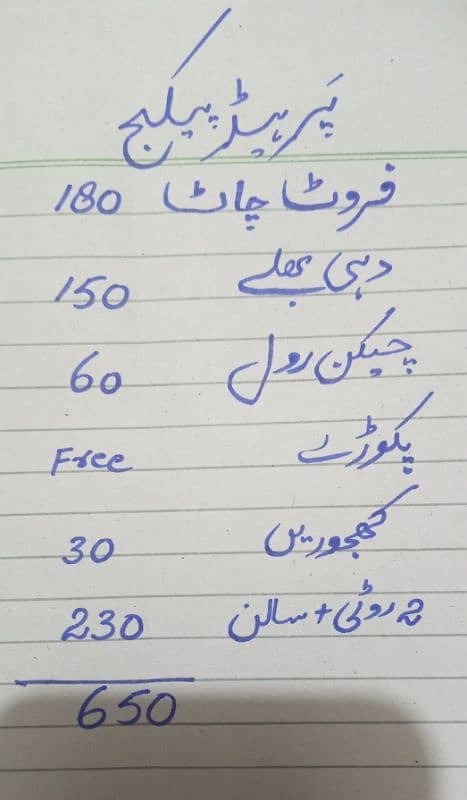 پر ہیڈ پیکیج
فروٹ چاٹ 180
دہی بھلے 150
چیکن رول 60
پکوڑے Free
کھجوریں 30
2 روٹی + سالن 230
650